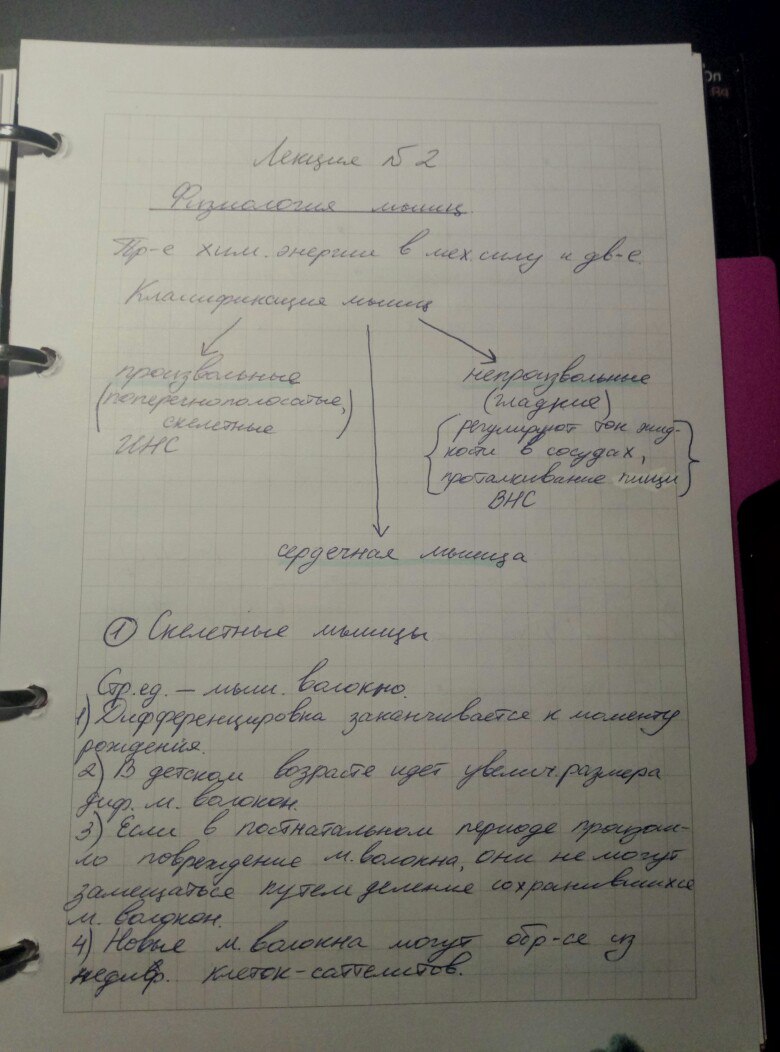 Лекция №2
Физиология мышц.
Пр-е хим. энергии в мех. силу и дв-е.
Классификация мышц
произвольные
(поперечнополосатые,
скелетные)
ЦНС
непроизвольные
(гладкие)
{регулируют ток жид-
кости в сосудах,
проталкивание пищи}
ВНС
сердечная мышца
① Скелетные мышцы
Стр. ед. – мыш. волокно.
1) Дифференцировка заканчивается к моменту
рождения.
2) В детском возрасте идет увелич. размера
диф. м. волокон.
3) Если в постнатальном периоде произош-
ло повреждение м. волокна, они не могут
замещаться путем деление сохранившихся
м. волокон.
4) Новые м. волокна могут обр-ся из
недифф. клеток-сателлитов.